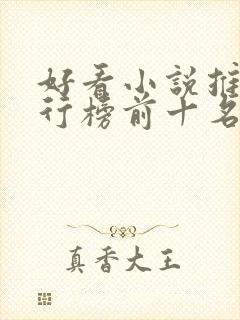 好看小说推
行榜前十名
真香大王